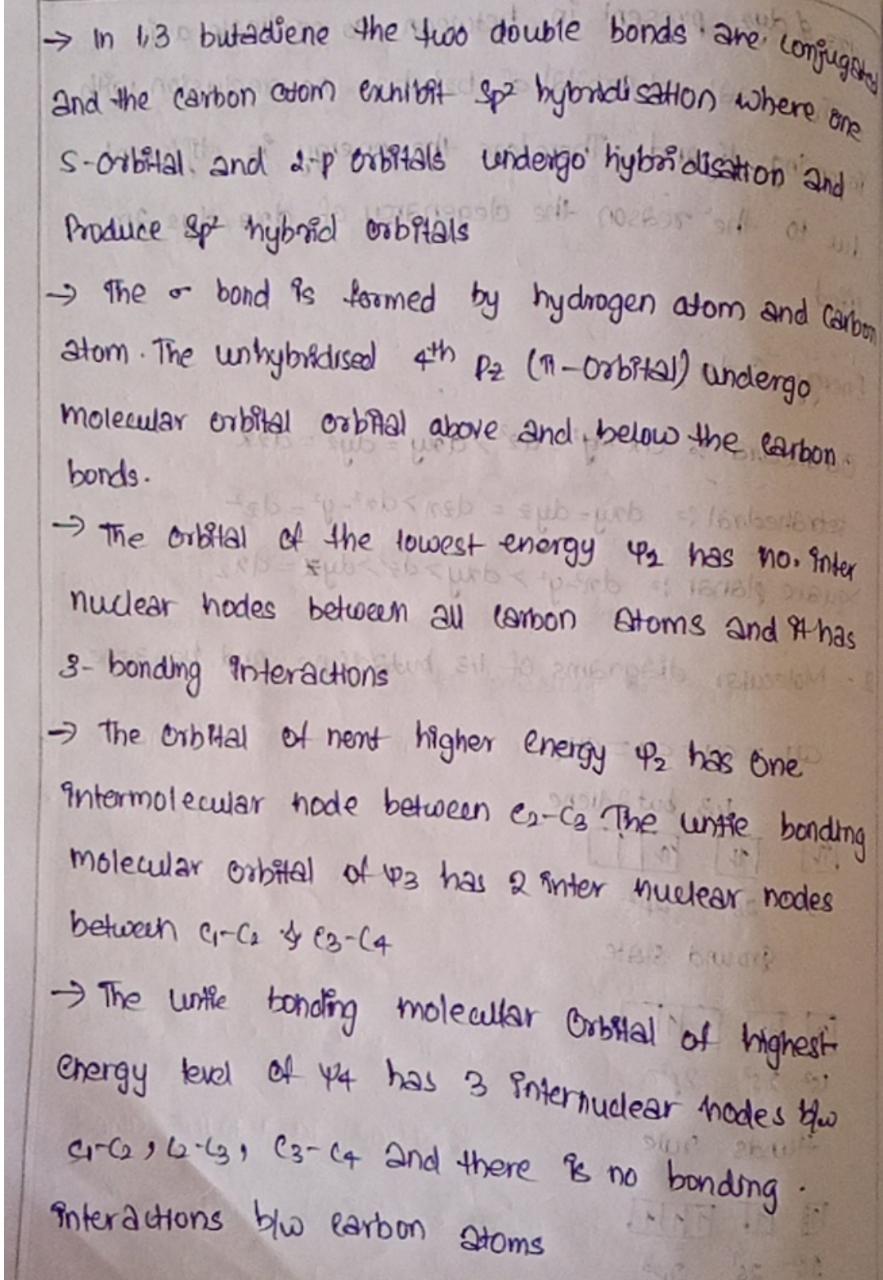 → In 1,3 butadiene the two double bonds are conjugated
and the carbon atom exhibit sp² hybridisation where one
s-orbital and 2-p orbitals undergo hybridisation and
Produce sp² hybrid orbitals
→ The σ bond is formed by hydrogen atom and Carbon
atom. The unhybridised 4th Pz (π-orbital) undergo
molecular orbital orbital above and below the carbon
bonds.
→ The orbital of the lowest energy ψ2 has no. inter
nuclear nodes between all carbon atoms and it has
3- bonding interactions
→ The orbital of next higher energy ψ2 has one
intermolecular node between C2-C3 The untie bonding
molecular orbital of ψ3 has 2 inter nuclear nodes
between C1-C2 & C3-C4
→ The untie bonding molecular orbital of highest
energy level of ψ4 has 3 internuclear nodes b/w
C1-C2, C2-C3, C3-C4 and there is no bonding.
interactions b/w carbon atoms